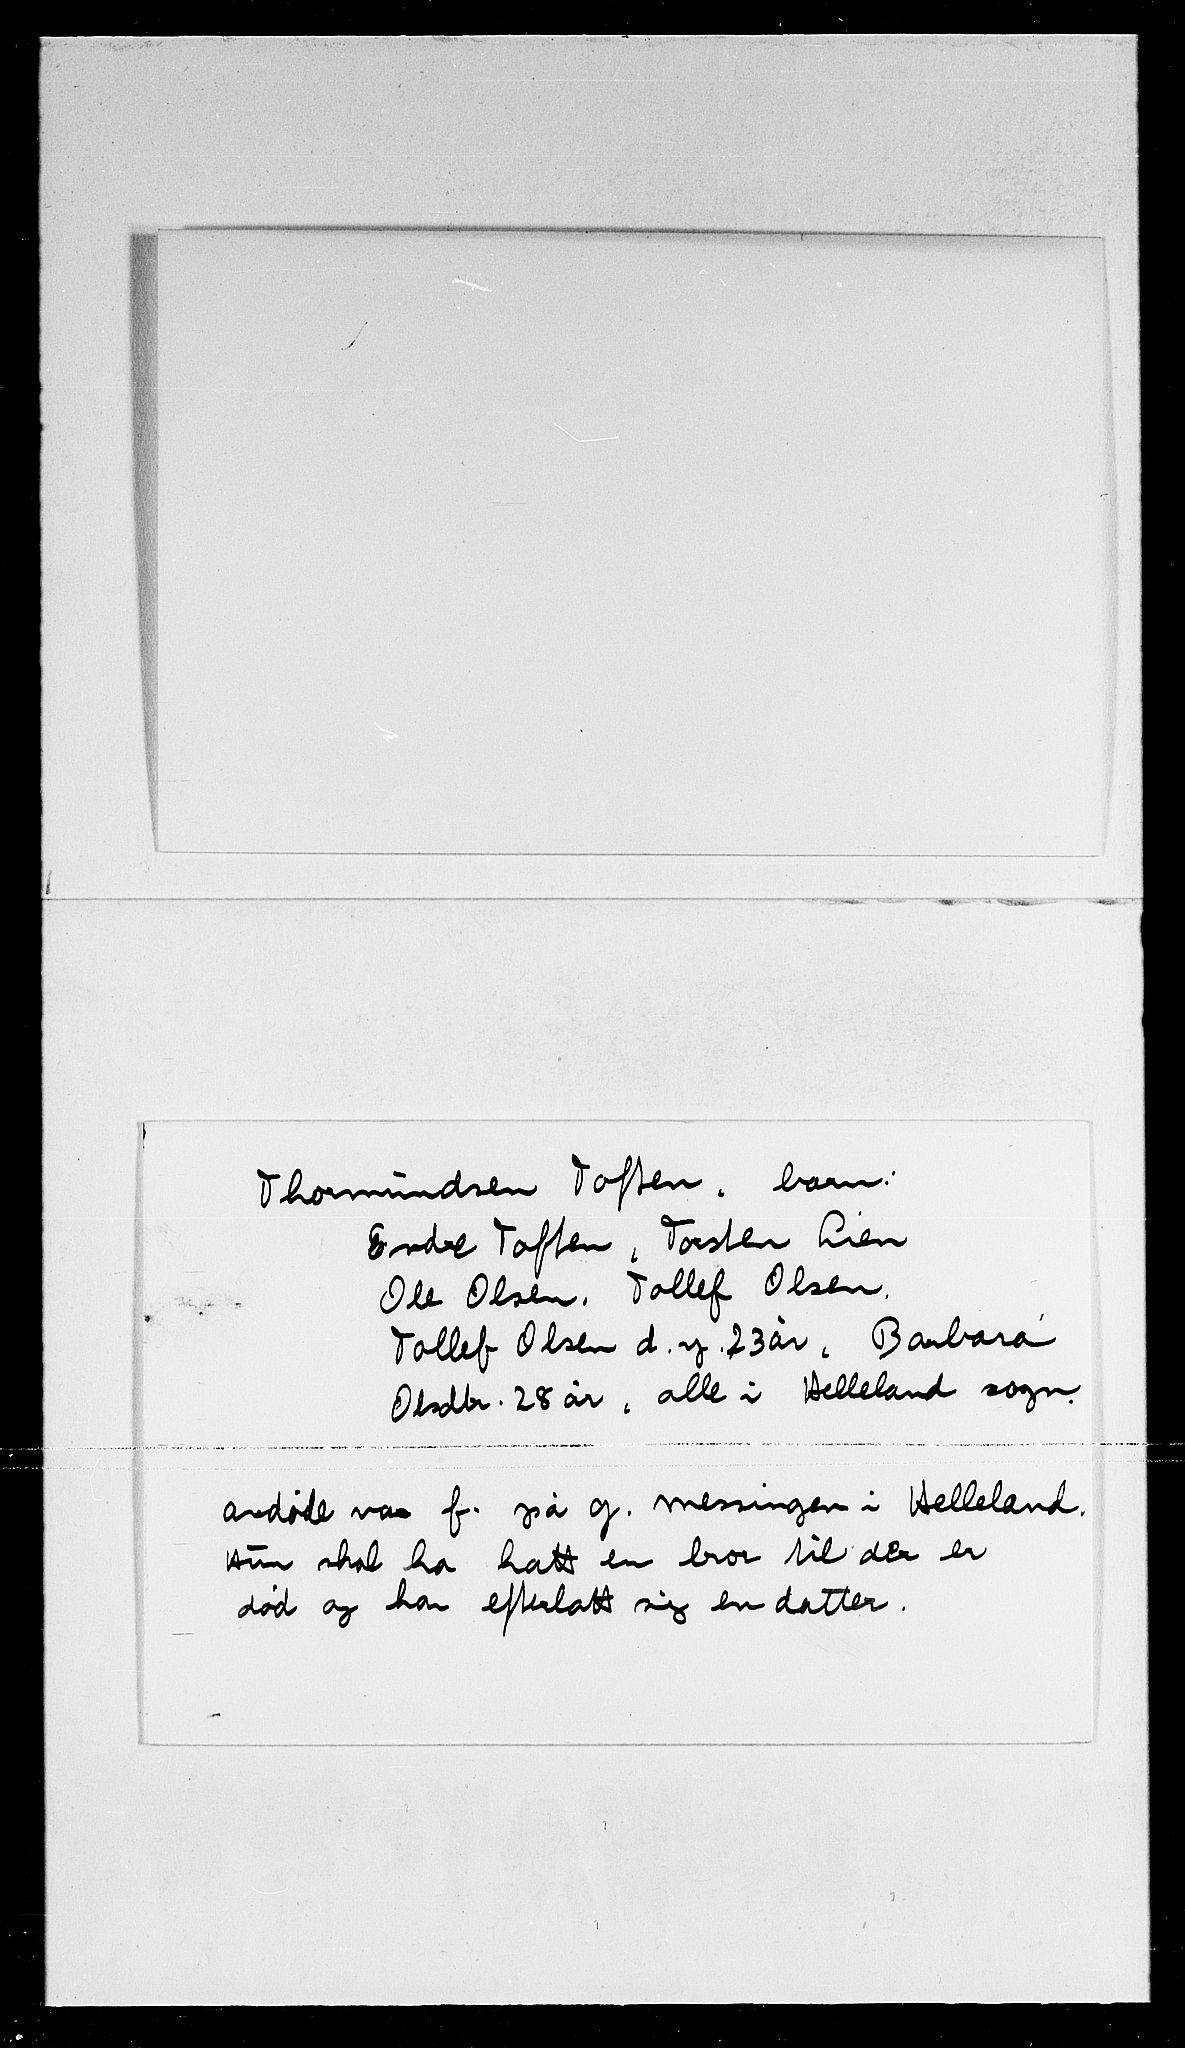 Thormundsen Toften, barn:
Endre Toften, Torsten Lien
Ole Olsen. Tollef Olsen.
Tollef Olsen d. y. 23 år, Barbara
Olsdtr. 28 år, alle i Helleland sogn.
avdöde var f. på g. messingen i Helleland.
Hun skal ha hatt en bror til der er
död og har efterlatt sig en datter.